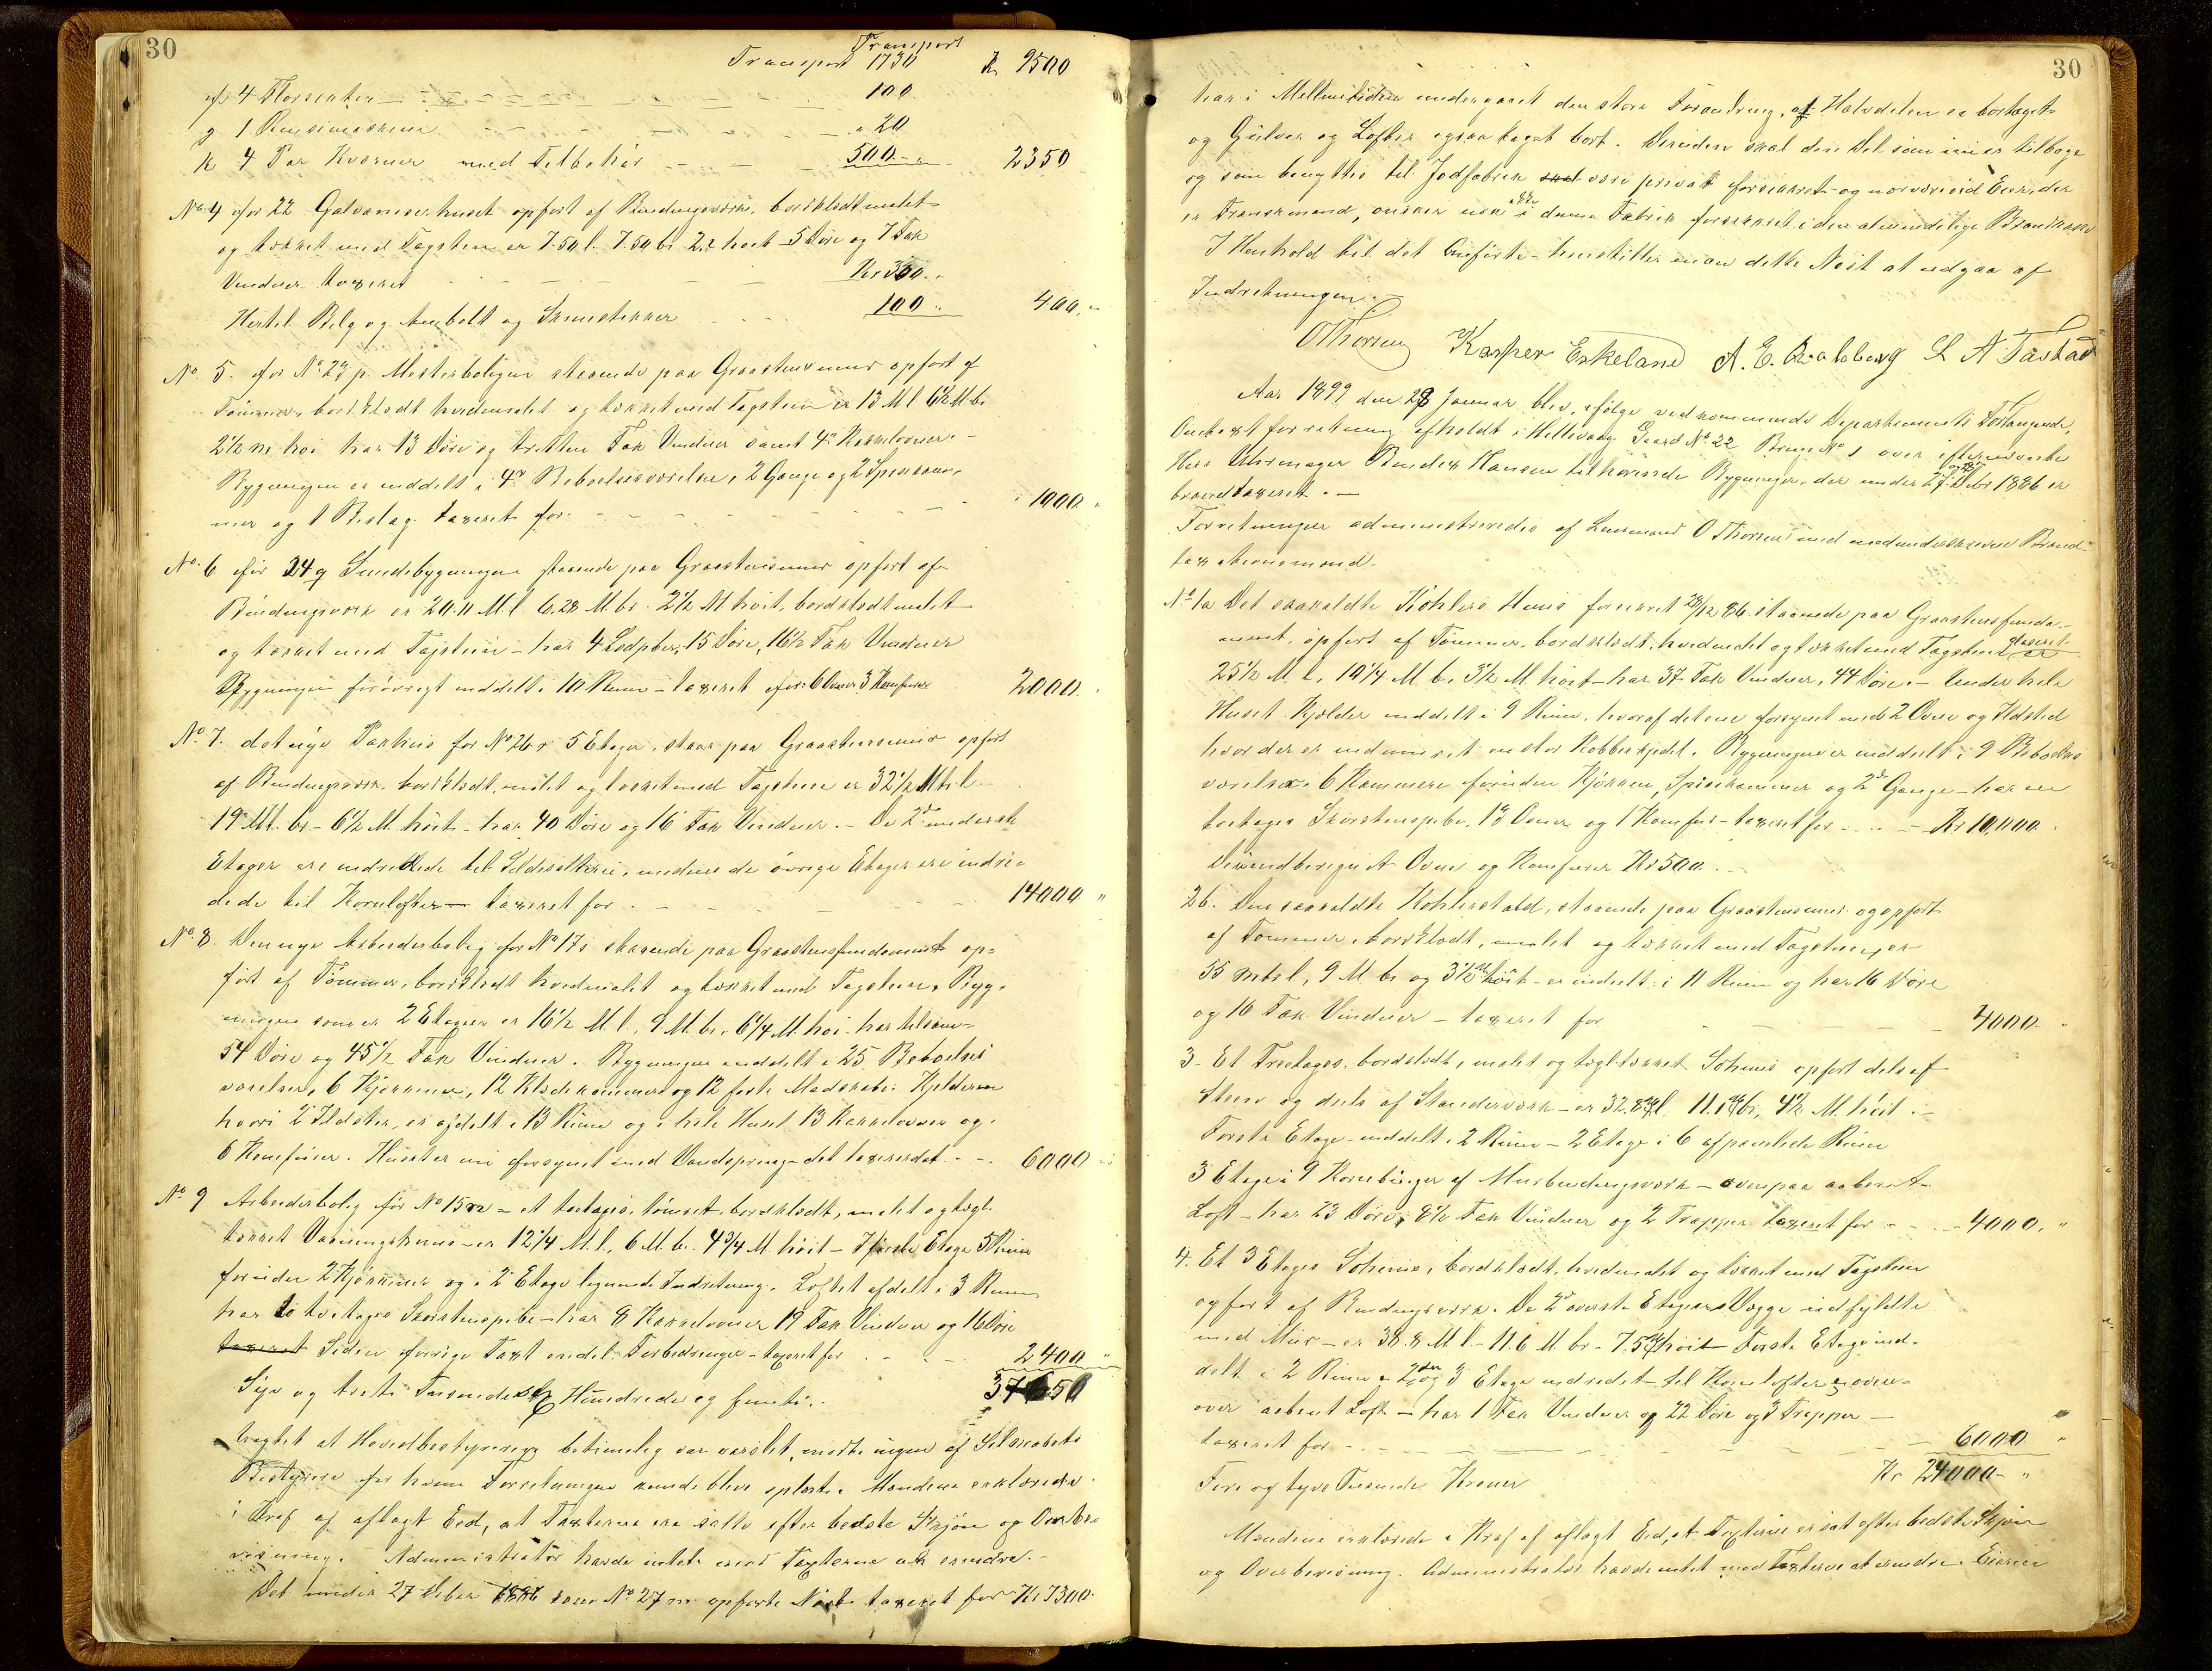 30
Transport
Transport 1730 Kr 9500
f 4 Florsenter 100
g 1 Rensemaskine " 20
h 4 Par Kværner med Tilbehør 500 - " 2350
No 4 før 22 Galvaniserhuset opført af Bindingsværk, bordklædt malet
og tækket med Tagsten er 7.50 l. 7.50 br. 2,2 høit 5 Døre og 7 Fak
Vinduer taxeret Kr 300 "
Hertil Belg og Ambolt og Skruestikker 100 " 400,-
No. 5. før No 23 p. Mesterboligen staaende paa Graastensmur opført af
Tømmer, bordklædt hvidmalet og tækket med Tagsten er 13 M l 6½ M br
2½ m høi har 13 Døre og tretten Fak Vinduer samt 4 Kakkelovner. -
Bygningen er inddelt i 4 Beboelsesværelser, 2 Gange og 2 Spisekam-
mer og 1 Beslag. taxeret for. 1000 "
No. 6 før 24 q Smedebygningen staaende paa Graastensmur opført af
Bindingsværk er 20.11 M. l. 6.28 M. br. 2½ M høit, bordklædt malet
og tækket med Tagsten - har 4 Lodpiber, 15 Døre, 16½ Fak Vinduer
Bygningen forøvrigt inddelt i 10 Rum - taxeret for: 6 Ovner 3 Komfurer 2000.
No. 7. det nye Pakhus før No 26 r 5 Etager, staar paa Graastensmur opført
af Bindingsværk bordklædt, malet og tækket med Tagsten er 32½ Mtr l.
19 M. br - 6½ M. høit - har 40 Døre og 16 Fak Vinduer. - De 2de underste
Etager ere indredede til Sildesalteri, medens de øvrige Etager ere indre-
dede til Kornlofter - taxeret for 14000 "
No. 8. Den nye Arbeiderbolig før No 17 s staaende paa Graastensfundament op-
ført af Tømmer, bordklædt hvidmalet og tækket med Tagsten. Byg-
ningen som er 2 Etager er 16½ M l. 9 M. br. 6¼ M. høi - har tilsam-
54 Døre og 45½ Fak Vinduer. Bygningen inddelt i 25 Beboelses
værelser, 6 Kjøkkener, 12 Klædekammer og 12 faste Madskabe. Kjelderen
hvori 2 Ildsteder, er afdelt i 13 Rum og i hele Huset 13 Kakkelovner og
6 Komfurer. Huset er nu forsynet med Vandspring - det taxeredes 6000
No 9 Arbeiderbolig før No 15 m - et toetages, tømret, bordklædt, malet og tegl-
tækket Vaaningshuus - er 12¼ M. l., 6 M. br. 4¾ M. høit - I første Etage 5 Rum
foruden 2 Kjøkkener og i 2 Etage lignende Indretning. Loftet afdelt i 3 Rum
har to toetages Skorstenspibe - har 8 Kakkelovner 19 Fak Vinduer og 16 Døre
taxeret Siden forrige Taxt endel Forbedringer - taxeret for 2400 "
Syv og tretti Tusinde sex Hundrede og femti. 37650
Uagtet at Hovedbestyreren betimelig var varslet, mødte ingen af Selskabets
Bestyrere for hvem Forretningen kunde blive oplæst. Mændene erklærede
i Kraf af aflagt Eed, at Taxterne ere satte efter bedste Skjøn og Overbe-
visning. Administrator havde intet mod Taxterne at erindre. -
Det under 27 Deber 1886 som No 27 m opførte Nøst taxeret for Kr 7300.
30
har i Mellemtiden undergaaet den store Forandring, at Halvdelen er borttaget
og Gulver og Lofter ogsaa taget bort. Desuden skal den Del som nu er tilbage
og som benyttes til Jodfabrik skal være privat forsikret og nærværende Eier, der
er Franskmand, ønsker ikke i denne Fabrik forsikret i den almindelige Brandkasse
I Henhold til det Anførte henstiller man dette Nøst at udgaa af
Indretningen. -
O Thorsen Kasper Eskeland A. E. L A Tastad
Aar 1899 den 28 Januar blev, ifølge vedkommende Departements Forlangende,
Omtaxtforretning afholdt i Hillevaag Gaard No 22 Brug No 1 over efternævnte
Herr Uhrmager Bendix Hansen tilhørende Bygninger, der under 27 og 28 Debr 1886 er
brandtaxeret. -
Forretningen administreredes af Lensmand O Thorsen med medunderskrevne Brand-
taxationsmænd.
No 1 a Det saakaldte Köhlers Huus forsikret 28/12 86 staaende paa Graastensfunda-
ment, opført af Tømmer, bordklædt, hvidmalet og tækket med Tagsten er
25½ M l., 10¼ M. b., 3½ M høit - har 37 Fak Vinduer, 44 Døre. - Under hele
Huset Kjelder inddelt i 9 Rum, hvoraf det ene forsynet med 2 Ovne og Ildsted
hvor der er indmuret en stor Kobberkjedel. Bygningen er inddelt i 9 Beboelses
værelser, 6 Kammere foruden Kjøkken, Spisekammer og 2de Gange - har en
toetages Skorstenspibe, 10 Ovner og 1 Komfur - taxeret for Kr 10,000.
Derunder beregnet Ovne og Komfurer Kr 500.
2 b. Den saakaldte Köhlerstald, staaende paa Graastensmur og opført
af Tømmer, bordklædt, malet og tækket med Tagsten, er
55 Mtr l, 9 M br og 3½ M høit - er inddelt i 11 Rum og har 16 Døre
og 16 Fak Vinduer - taxeret for 4000 "
3. Et Treetages, bordklædt, malet og tegltækket Søhuus opført dels af
Steen og dels af Standerværk - er 32.8 M l. 11.1 M br. 4½ M. høit. -
Første Etage inddelt i 2 Rum - 2 Etage i 6 afpanelede Rum
3 Etage i 9 Kornbinger af Murbindingsværk - ovenpaa aabent
Loft - har 23 Døre, 8½ Fak Vinduer og 2 Trapper taxeret for 4000 "
4. Et 3 Etages Søhuus, bordklædt, hvidmalet og tækket med Tagsten
opført af Bindingsværk. De 2de øverste Etagers Vægge udfyldte
med Mur - er 38.8 M l - 11.6 M. br - 7.5 M høit - Første Etage ind-
delt i 2 Rum - 2den og 3 Etage indredet til Kornlofter - oven-
over aabent Loft - har 1 Fak Vinduer og 22 Døre og 3 Trapper -
taxeret for 6000 "
Fire og tyve Tusinde Kroner Kr 24000 - "
Mændene erklærede i Kraf af aflagt Eed, at Taxterne er sat efter bedste Skjøn
og Overbevisning. Administrator havde intet mod Taxterne at erindre. Eieren